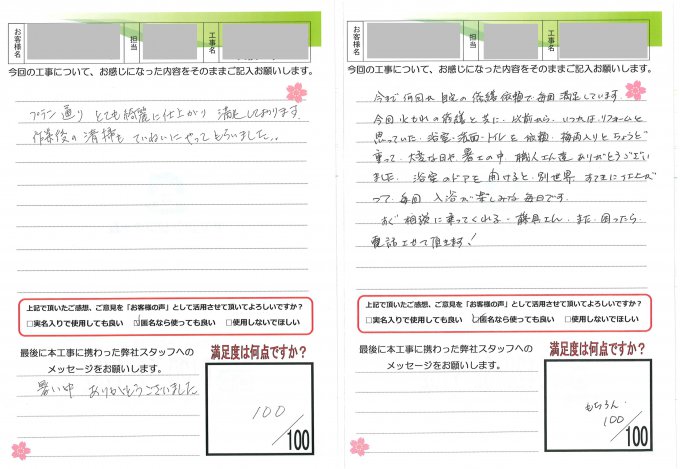 お客様名
担当
工事名
今回の工事について、お感じになった内容をそのままご記入お願いします。
プラン通り とても綺麗に仕上がり 満足しております
作業後の清掃も ていねいにやってもらいました。
上記で頂いたご感想、ご意見を「お客様の声」として活用させて頂いてよろしいですか？
□実名入りで使用しても良い ☑匿名なら使っても良い □使用しないでほしい
最後に本工事に携わった弊社スタッフへの
メッセージをお願いします。
暑い中 ありがとうございました
満足度は何点ですか？
100
/100
お客様名
担当
工事名
今回の工事について、お感じになった内容をそのままご記入お願いします。
今まで何回か自宅の修繕依頼で毎回満足しています。
今回水もれの修繕と共に、以前から、いつかはリフォームと
思っていた、浴室・洗面・トイレを依頼、梅雨入りとちょうど
重って、大変な日や、暑さの中、職人さん達ありがとうござい
ました。浴室のドアを開けると、別世界、すてきに仕上が
って、毎回 入浴が楽しみな毎日です。
すぐ相談に乗ってくれる・藤具さん、また、困ったら
電話させて頂きます！
上記で頂いたご感想、ご意見を「お客様の声」として活用させて頂いてよろしいですか？
□実名入りで使用しても良い ☑匿名なら使っても良い □使用しないでほしい
最後に本工事に携わった弊社スタッフへの
メッセージをお願いします。
満足度は何点ですか？
もちろん、
100
/100